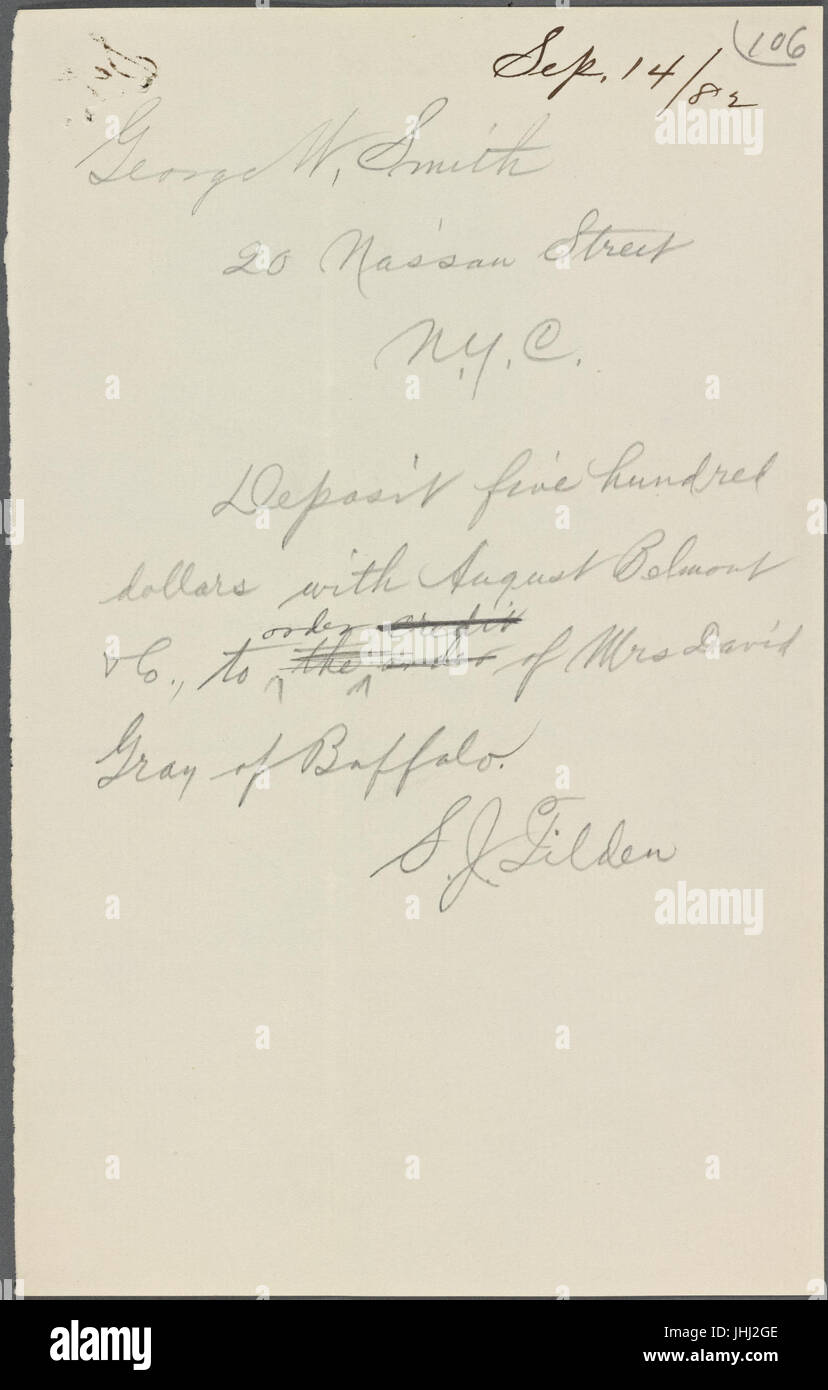 106
Sep. 14/82
George W. Smith
20 Nassau Street
N.Y.C.
Deposit five hundred
dollars with August Belmont
order credit
& Co., to the order of Mrs David
Gray of Buffalo.
S. J. Tilden
alamy
Image ID: JHJ2GE
www.alamy.com